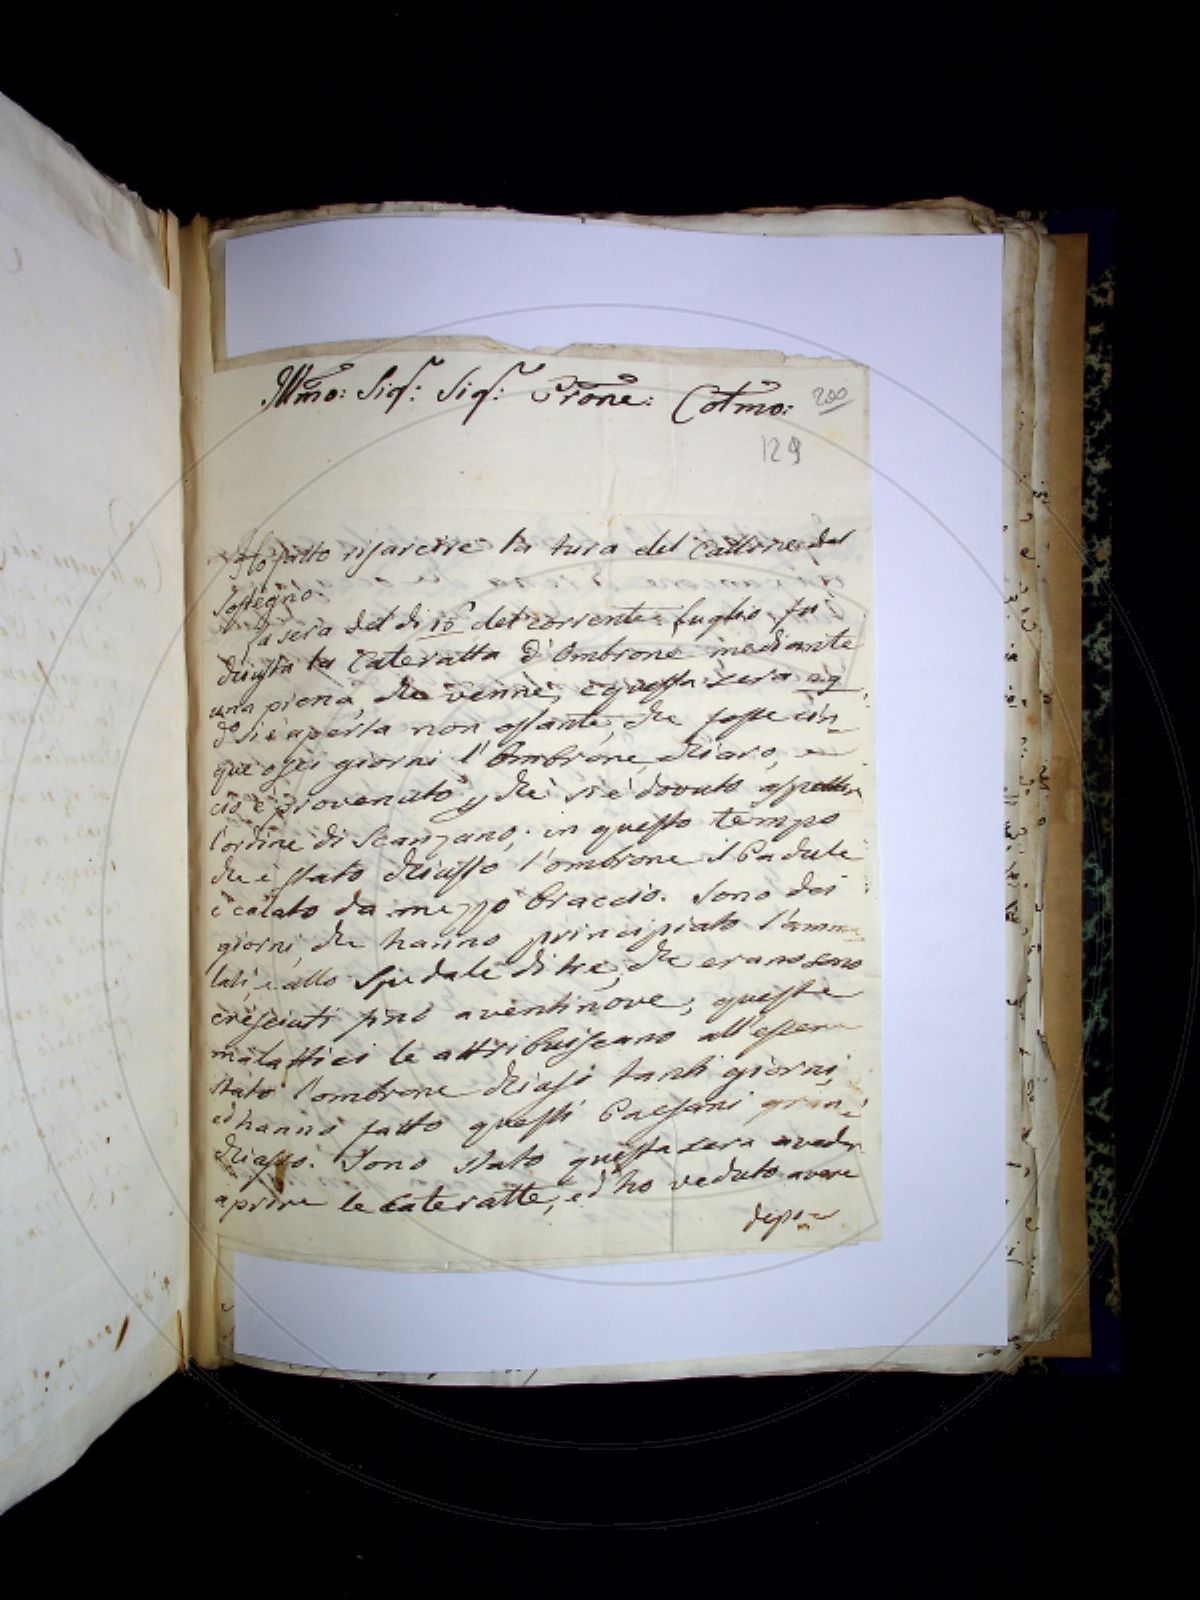 Illmo: Sigr: Sigr: Prone: Colmo:
200
129
Ho fatto risarcire la tura del Callone del
Sostegno.
La sera del di 18 del corrente Luglio fu
chiusa la Cateratta d'Ombrone mediante
una piena, che venne, e questa sera 29
do si è aperta non ostante, che fosse cin-
que o sei giorni l'Ombrone chiaro, e
ciò è provenuto p chè si è dovuto aspettar
l'ordine di Scanzano; in questo tempo
che è stato chiusso l'ombrone il Padule
è calato da mezzo braccio. Sono dei
giorni, che hanno principiato l'amma
lati, e allo Spedale di tre, che erano sono
cresciuti sino a ventinove; queste
malattici le attribuiscano all'essere
stato l'ombrone chiaso tanti giorni,
ed hanno fatto questi Paesani gran
chiasso. Sono stato questa sera a vedr
aprire le cateratte, ed ho veduto avere
depo-